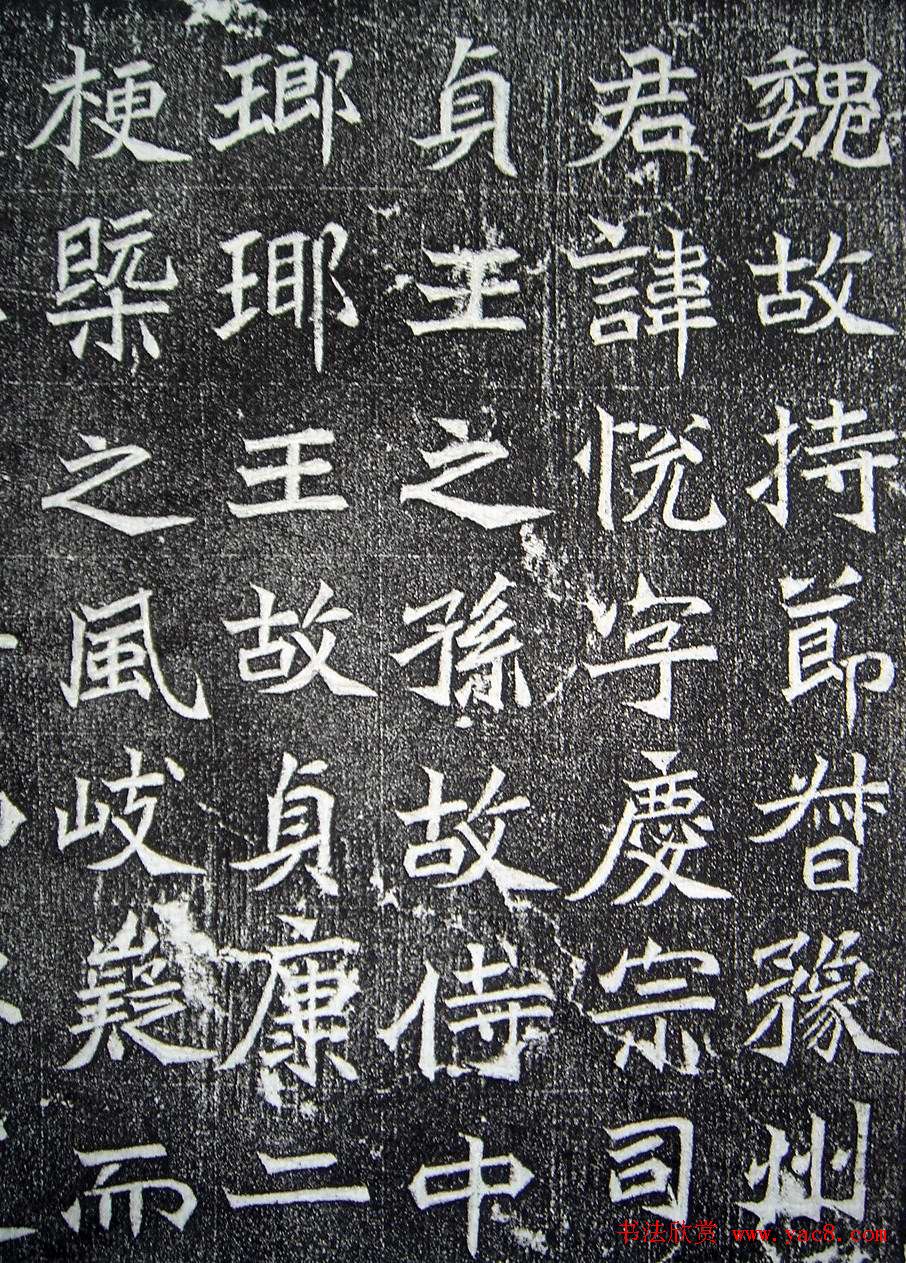 魏故持節督豫州
君諱悅字慶宗司
貞王之孫故侍中
瑯瑘王故貞康二
梗槩之風岐嶷而
书法欣赏 www.yac8.com